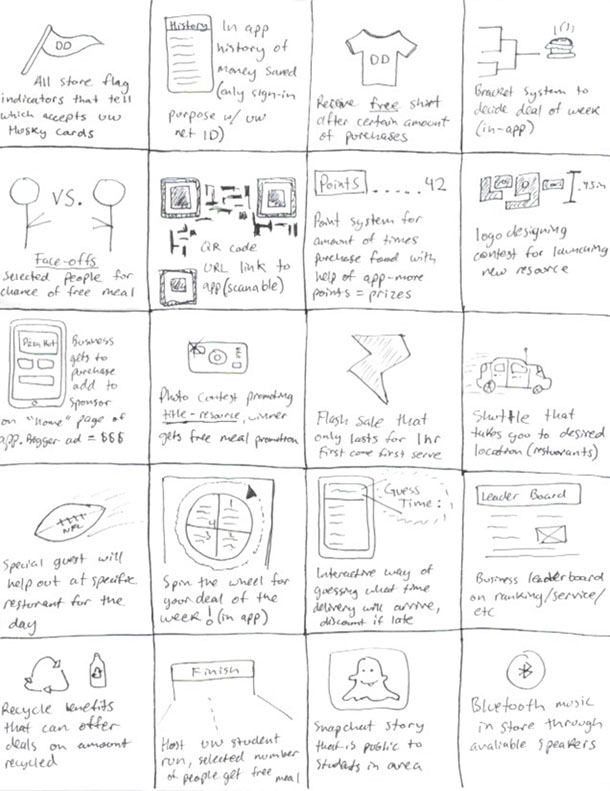 DD
All store flag
indicators that tell
which accepts UW
Husky cards
History
In app
history of
money saved
(only sign-in
purpose w/ UW
net ID)
DD
Receive free shirt
after certain amount
of purchases
Bracket system to
decide deal of week
(in-app)
VS.
Face-offs
Selected people for
chance of free meal
QR code
URL link to
app (scanable)
Points.....42
Point system for
amount of times
purchase food with
help of app-more
points = prizes
.45in
logo designing
contest for launching
new resource
Pizza Hut
Business
gets to
purchase
add to
sponsor
on "home" page of
app. Bigger ad = $$$
Photo Contest promoting
title-resource, winner
gets free meal promotion
Flash Sale that
only lasts for 1hr
First come first serve
Shuttle that
takes you to desired
location (resturants)
NFL
Special guest will
help out at specific
resturant for the
day
1
2
3
4
Spin the wheel for
your deal of the
week! (in app)
Guess
Time:
Interactive way of
guessing what time
delivery will arrive,
discount if late
Leader Board
Business leaderboard
on ranking/service/
etc
Recycle benefits
that can offer
deals on amount
recycled
Finish
Host UW student
run, selected number
of people get free meal
Snapchat story
that is public to
students in area
Bluetooth music
in store through
avaliable speakers